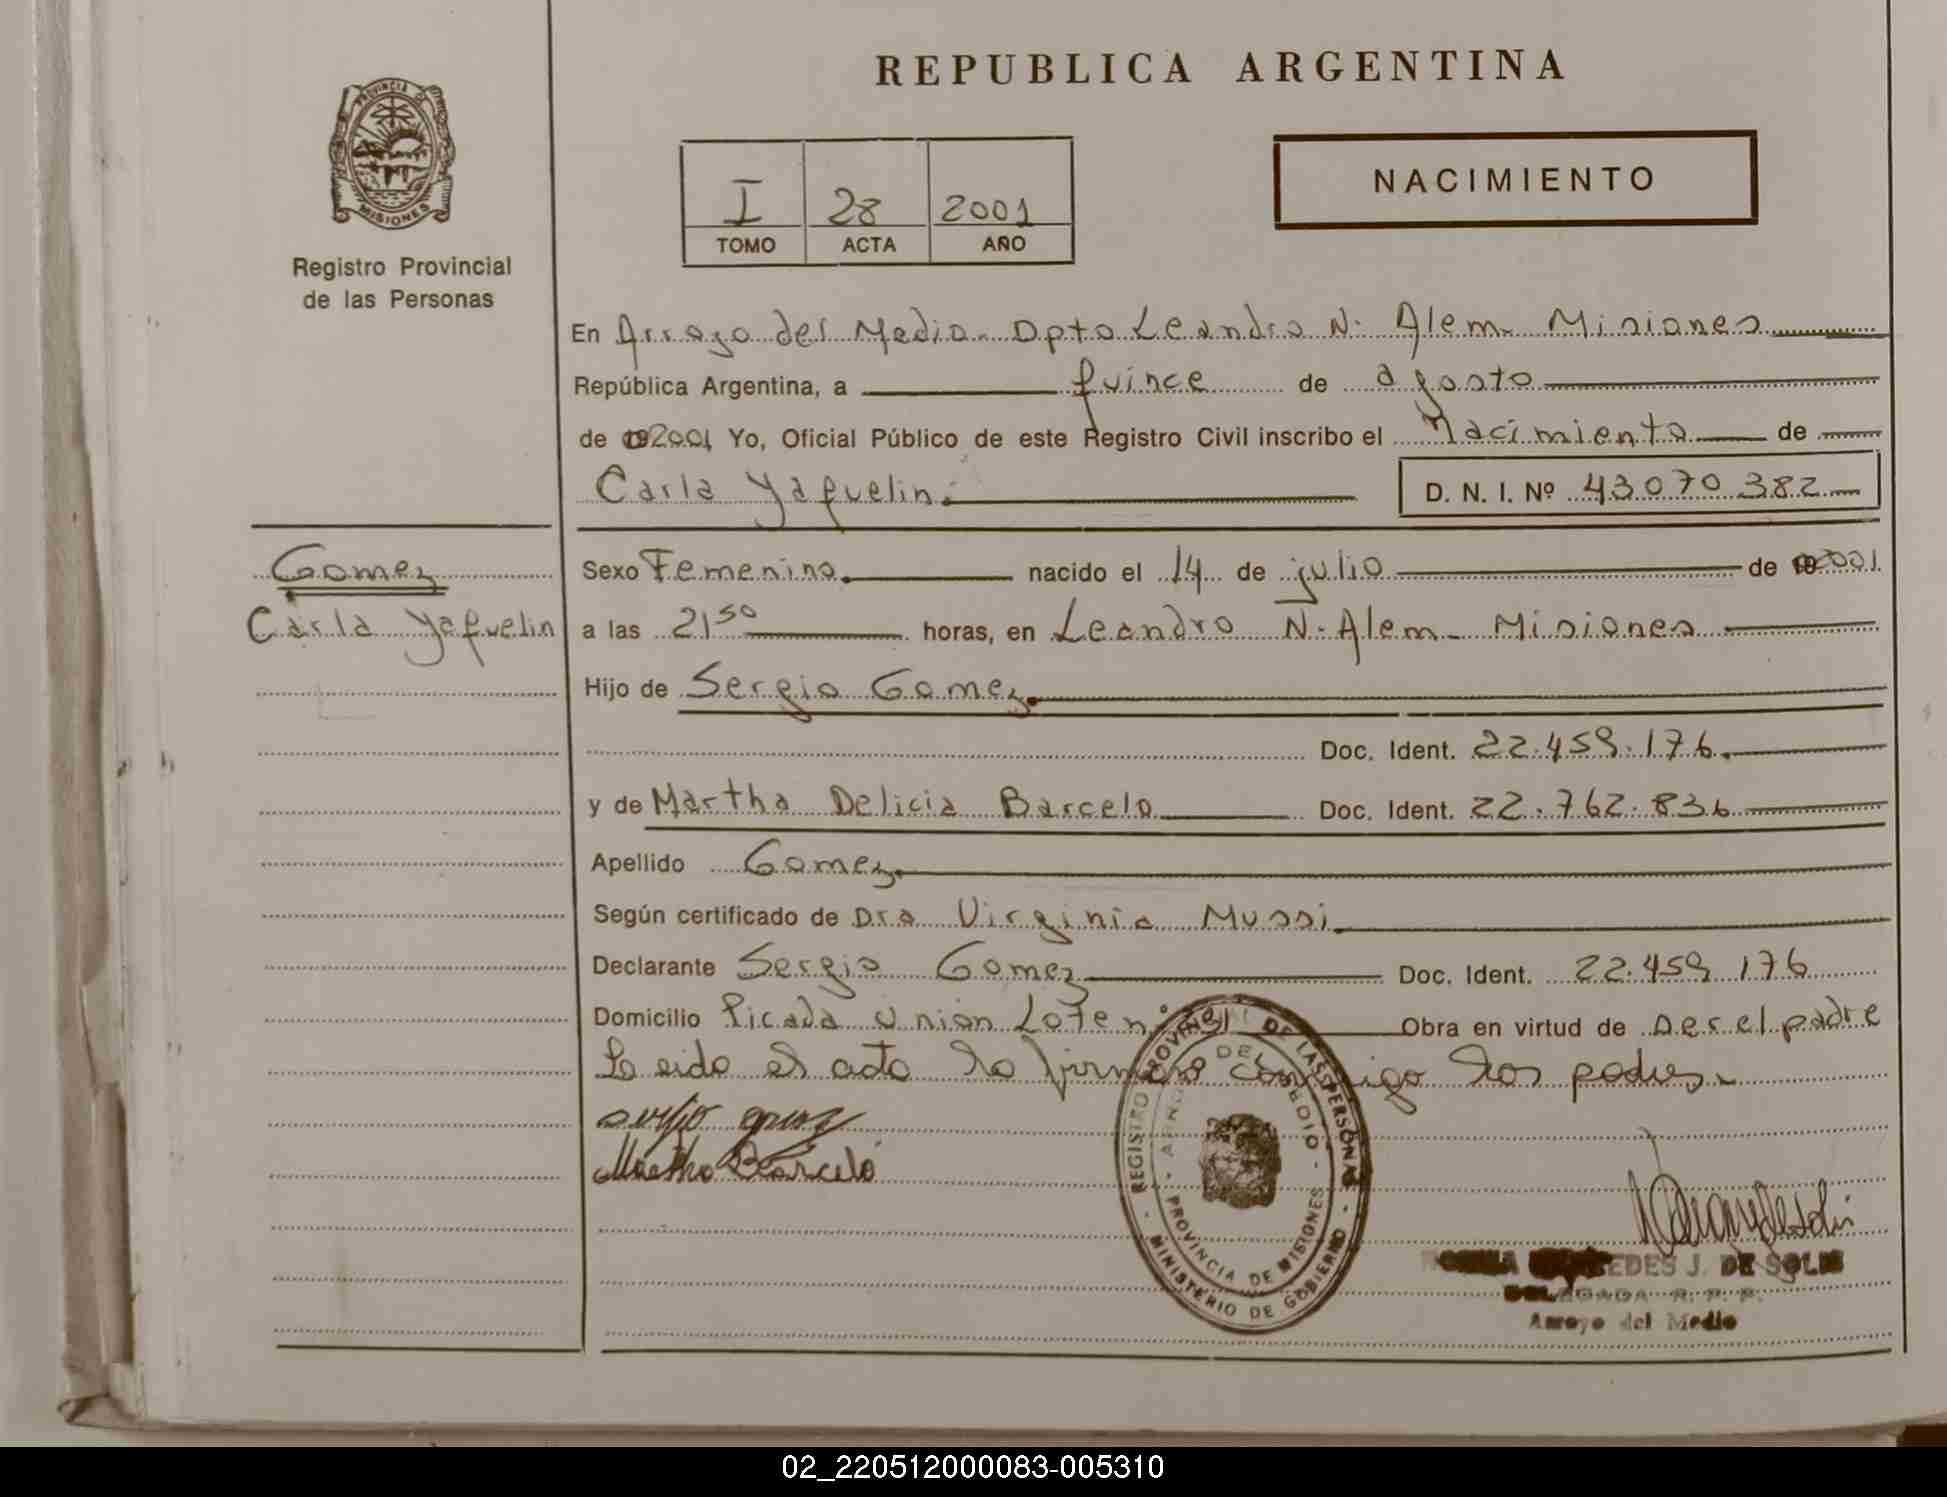 REPUBLICA ARGENTINA
PROVINCIA DE
MISIONES
Registro Provincial
de las Personas
I 28 2001
TOMO ACTA AÑO
NACIMIENTO
En Arroyo del Medio - Dpto Leandro N. Alem - Misiones
República Argentina, a quince de agosto
de 2001 Yo, Oficial Público de este Registro Civil inscribo el Nacimiento de
Carla Yaquelin. D. N. I. Nº 43070382
Gomez
Carla Yaquelin
Sexo Femenino. nacido el 14 de julio de 2001
a las 21⁵⁰ horas, en Leandro N. Alem - Misiones
Hijo de Sergio Gomez.
Doc. Ident. 22.459.176.
y de Martha Delicia Barcelo Doc. Ident. 22.762.836
Apellido Gomez.
Según certificado de Dra Virginia Mussi.
Declarante Sergio Gomez Doc. Ident. 22.459 176
Domicilio Picada Unión Lote n° Obra en virtud de ser el padre
Leido el acta la firman conmigo los padres.
Martha Barceló
REGISTRO PROVINCIAL DE LAS PERSONAS
ARROYO DEL MEDIO
PROVINCIA DE MISIONES
MINISTERIO DE GOBIERNO
J. DE SOLIS
DELEGADA R. P. P.
Arroyo del Medio
02_220512000083-005310